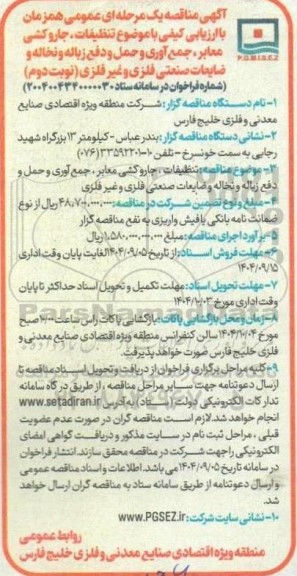 آگهی مناقصه یک مرحله ای عمومی همزمان
با ارزیابی کیفی با موضوع تنظیفات، جاروکشی
معابر، جمع آوری و حمل و دفع زباله و نخاله و
ضایعات صنعتی فلزی و غیر فلزی (نوبت دوم)
(شماره فراخوان در سامانه ستاد: 2004004330000030)
P.G.M.I.S.E.Z
۱- نام دستگاه مناقصه گزار: شرکت منطقه ویژه اقتصادی صنایع
معدنی و فلزی خلیج فارس
۲- نشانی دستگاه مناقصه گزار: بندرعباس- کیلومتر ۱۳ بزرگراه شهید
رجایی به سمت خونسرخ - تلفن ۱۰-۳۳۵۹۲۲۰۱ (۰۷۶)
۳- موضوع مناقصه: تنظیفات، جاروکشی معابر، جمع آوری و حمل و
دفع زباله و نخاله و ضایعات صنعتی فلزی و غیر فلزی
۴- مبلغ و نوع تضمین شرکت در مناقصه: ۴۸,۷۰۰,۰۰۰,۰۰۰ ریال از نوع
ضمانت نامه بانکی یا فیش واریزی به نفع مناقصه گزار
۵- برآورد اجرای مناقصه: مبلغ ۱,۵۸۰,۰۰۰,۰۰۰,۰۰۰ ریال
۶- مهلت فروش اسناد: از تاریخ ۱۴۰۴/۰۹/۰۵ لغایت پایان وقت اداری
۱۴۰۴/۰۹/۱۵
۷- مهلت تحویل اسناد: مهلت تکمیل و تحویل اسناد حداکثر تا پایان
وقت اداری مورخ ۱۴۰۴/۱۰/۰۳
۸- زمان و محل بازگشایی پاکات: بازگشایی پاکات راس ساعت صبح
مورخ ۱۴۰۴/۱۰/۰۴ سالن کنفرانس منطقه ویژه اقتصادی صنایع معدنی و
فلزی خلیج فارس صورت خواهد پذیرفت.
۹- کلیه مراحل برگزاری فراخوان از دریافت و تحویل اسناد مناقصه تا
ارسال دعوتنامه جهت سایر مراحل مناقصه، از طریق درگاه سامانه
تدارکات الکترونیکی دولت (ستاد) به آدرس www.setadiran.ir
انجام خواهد شد. لازم است مناقصه گران در صورت عدم عضویت
قبلی، مراحل ثبت نام در سایت مذکور و دریافت گواهی امضای
الکترونیکی را جهت شرکت در مناقصه محقق سازند. انتشار فراخوان
در سامانه تاریخ ۱۴۰۴/۰۹/۰۵ می باشد. اطلاعات و اسناد مناقصه عمومی
و ارسال دعوتنامه از طریق سامانه ستاد به مناقصه گران ارسال خواهد
شد.
۱۰- نشانی سایت شرکت: www.PGSEZ.ir
روابط عمومی
منطقه ویژه اقتصادی صنایع معدنی و فلزی خلیج فارس